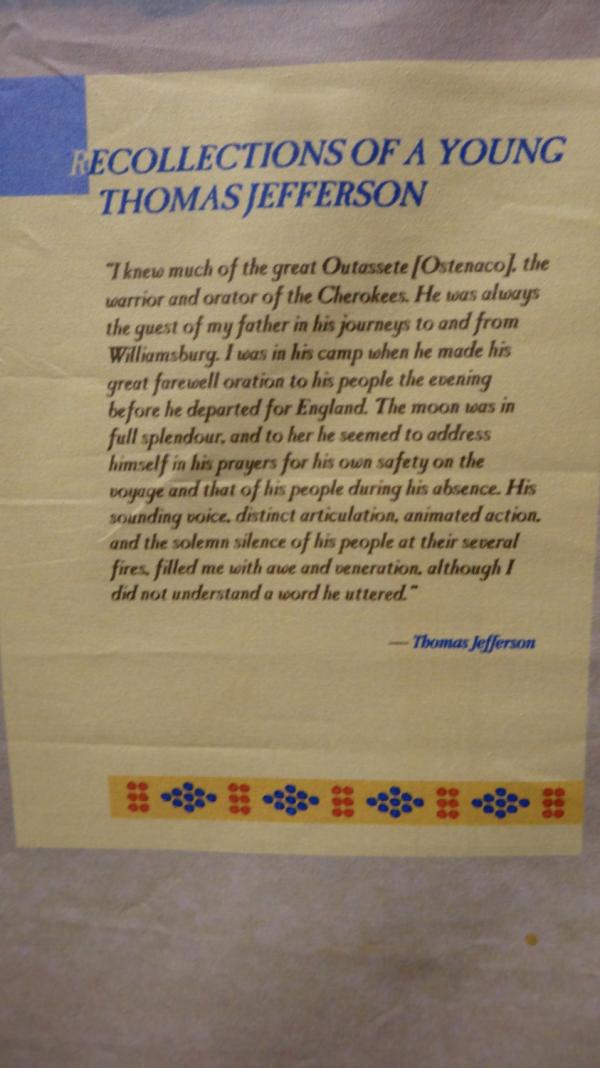 RECOLLECTIONS OF A YOUNG
THOMAS JEFFERSON
"I knew much of the great Outassete [Ostenaco], the
warrior and orator of the Cherokees. He was always
the guest of my father in his journeys to and from
Williamsburg. I was in his camp when he made his
great farewell oration to his people the evening
before he departed for England. The moon was in
full splendour, and to her he seemed to address
himself in his prayers for his own safety on the
voyage and that of his people during his absence. His
sounding voice, distinct articulation, animated action,
and the solemn silence of his people at their several
fires, filled me with awe and veneration, although I
did not understand a word he uttered."
— Thomas Jefferson